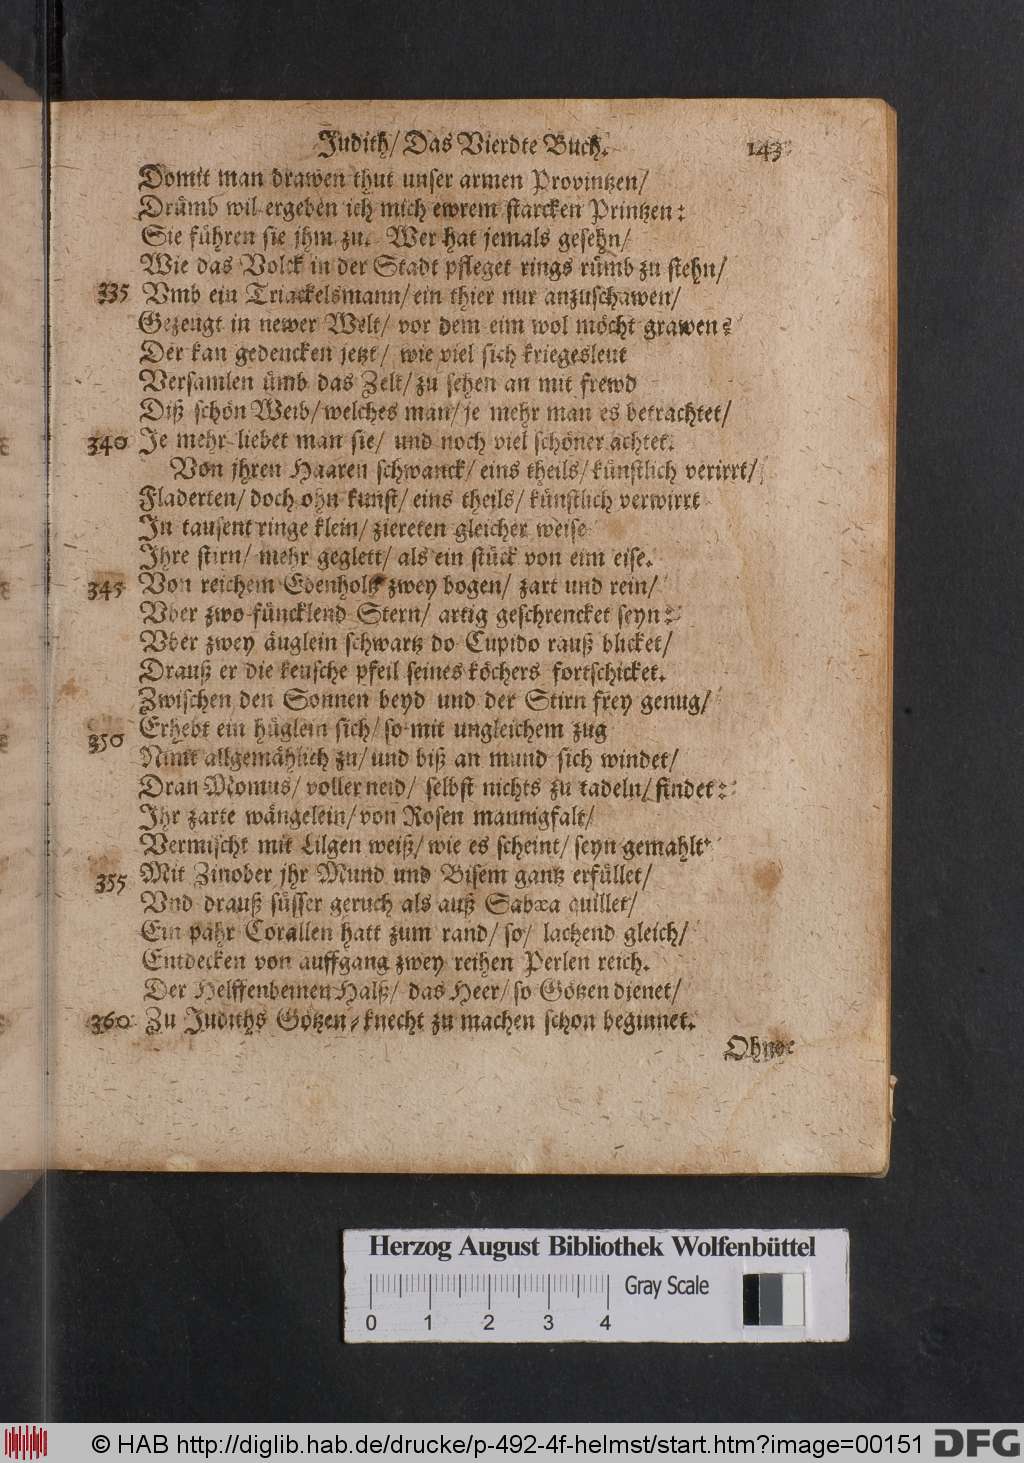 Judith/ Das Vierdte Buch. 143
Domit man drawen thut unser armen Provintzen/
Drümb wil ergeben ich mich ewrem starcken Printzen:
Sie führen sie jhm zu. Wer hat jemals gesehn/
Wie das Volck in der Stadt pfleget rings rümb zu stehn/
335 Vmb ein Triackelsmann/ ein thier nur anzuschawen/
Gezeugt in newer Welt/ vor dem eim wol möcht grawen?
Der kan gedencken jetzt/ wie viel sich kriegesleut
Versamlen ümb das Zelt/ zu sehen an mit frewd
Diß schön Weib/ welches man/ je mehr man es betrachtet/
340 Je mehr liebet man sie/ und noch viel schöner achtet.
Von jhren Haaren schwanck/ eins theils/ künstlich verirrt/
Fladerten/ doch ohn kunst/ eins theils/ künstlich verwirrt
In tausent ringe klein/ ziereten gleicher weise
Ihre stirn/ mehr geglett/ als ein stück von eim eise.
345 Von reichem Ebenholtz zwey bogen/ zart und rein/
Vber zwo füncklend Stern/ artig geschrencket seyn:
Vber zwey äuglein schwartz do Cupido rauß blicket/
Drauß er die keusche pfeil seines köchers fortschicket.
Zwischen den Sonnen beyd und der Stirn frey genug/
350 Erhebt ein hüglein sich/ so mit ungleichem zug
Nimt allgemählich zu/ und biß an mund sich windet/
Dran Momus/ voller neid/ selbst nichts zu tadeln/ findet:
Ihr zarte wängelein/ von Rosen mannigfalt/
Vermischt mit Lilgen weiß/ wie es scheint/ seyn gemahlt
355 Mit Zinober jhr Mund und Bisem gantz erfüllet/
Vnd drauß süsser geruch als auß Sabæa quillet/
Ein pahr Corallen hatt zum rand/ so/ lachend gleich/
Entdecken von auffgang zwey reihen Perlen reich.
Der Helffenbeinen Halß/ das Heer/ so Götzen dienet/
360 Zu Judiths Götzen-knecht zu machen schon beginnet.
Ohne
Herzog August Bibliothek Wolfenbüttel
Gray Scale
0 1 2 3 4
© HAB http://diglib.hab.de/drucke/p-492-4f-helmst/start.htm?image=00151 DFG